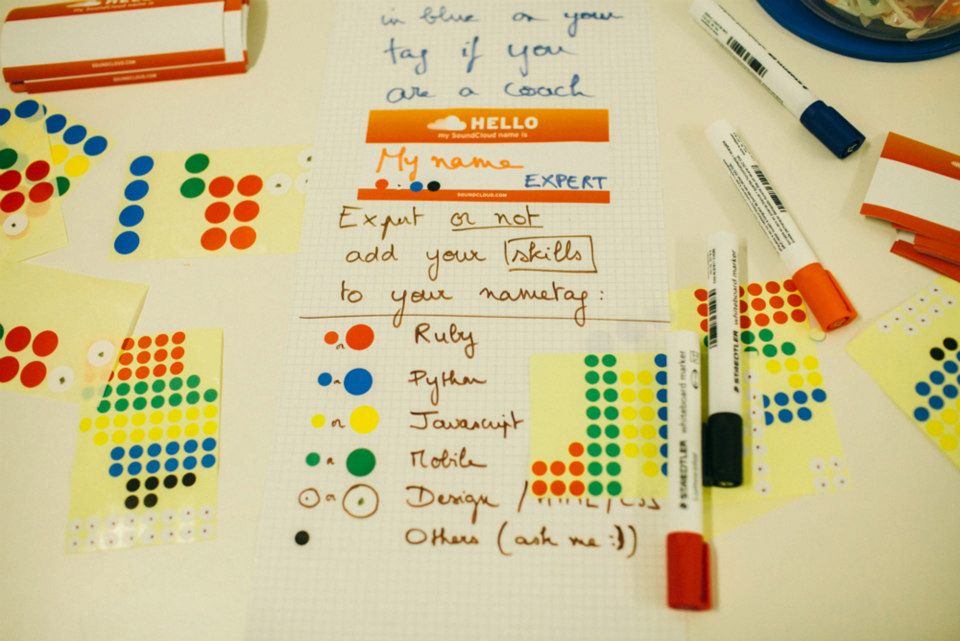 in blue on your
tag if you
are a coach
HELLO
my SoundCloud name is
My name
EXPERT
SOUNDCLOUD.COM
Expert or not
add your skills
to your nametag:
or Ruby
or Python
or Javascript
or Mobile
or Design / HTML/CSS
Others (ask me :))
SOUNDCLOUD.COM
STAEDTLER whiteboard marker
STAEDTLER whiteboard marker